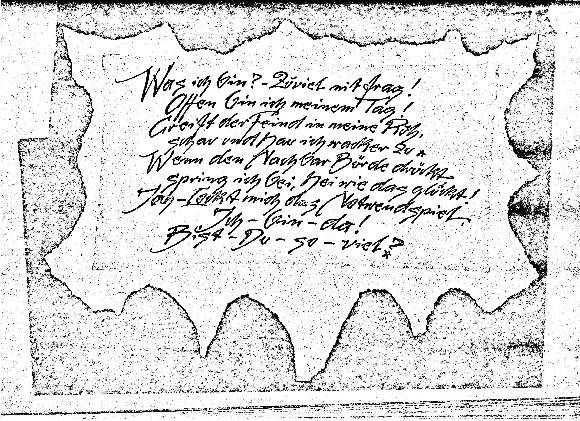 Was ich bin? - Zuviel nit frag!
Offen bin ich meinem Tag!
Greift der Feind in meine Ruh,
schau und hau ich wacker zu.
Wenn den Nachbar Bürde drückt
spring ich bei, hei wie das glückt!
lockt mich das Notwendspiel
Ich - bin - da!
Bist - Du - so - viel?